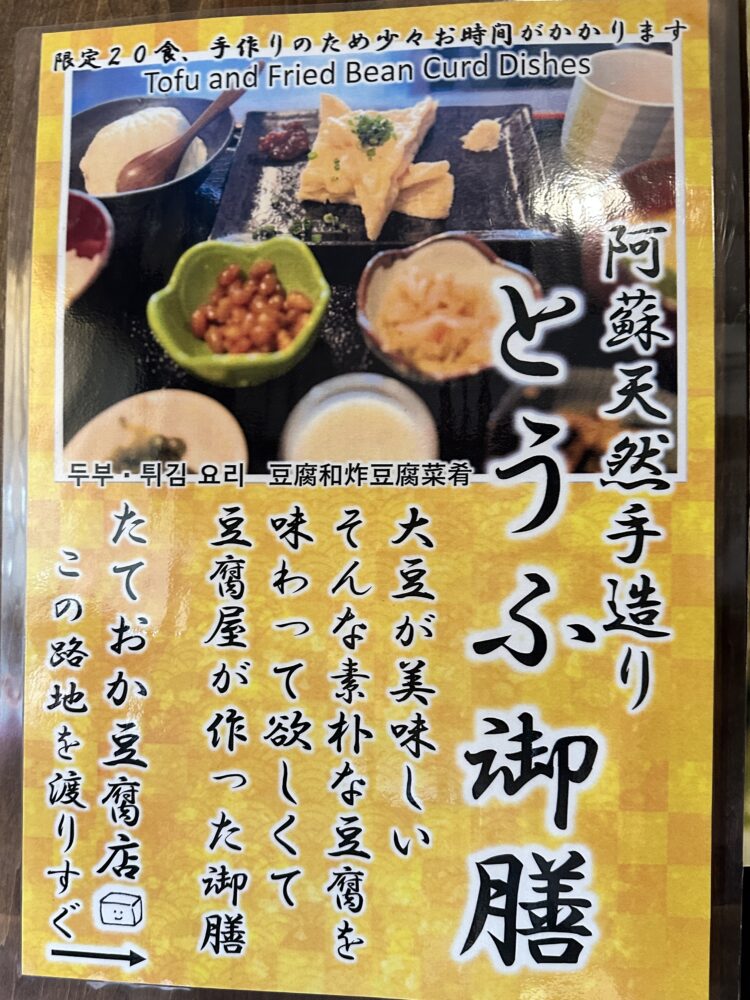 限定２０食、手作りのため少々お時間がかかります
Tofu and Fried Bean Curd Dishes
두부・튀김 요리　豆腐和炸豆腐菜肴
阿蘇天然手造り
とうふ御膳
大豆が美味しい
そんな素朴な豆腐を
味わって欲しくて
豆腐屋が作った御膳
たておか豆腐店
この路地を渡りすぐ